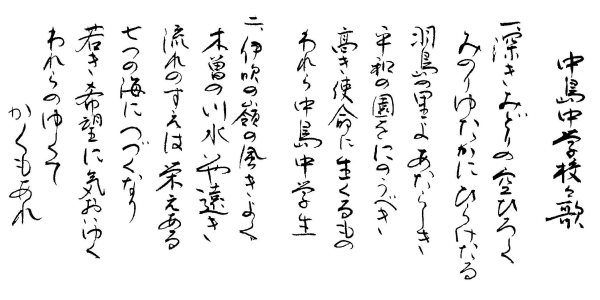 中島中学校々歌
一、深きみどりの空ひろく
みのりゆたかにひらけたる
羽島の里よあたらしき
平和の園をにのうべき
高き使命に生くるもの
われら中島中学生
二、伊吹の嶺の風きよく
木曽の川水いや遠き
流れのすえは栄えある
七つの海につづくなり
若き希望に気おいゆく
われらのゆくて
かくもあれ